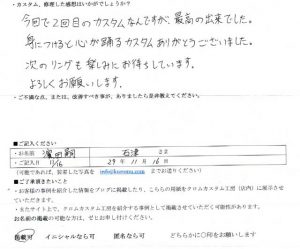 ・カスタム、修理した感想はいかがでしょうか？
今回で2回目のカスタムなんですが、最高の出来でした。
身につけると心が踊るカスタムありがとうございました。
次のリングも楽しみにお待ちしています。
よろしくお願いします。
・ご不満な点、または、改善すべき事が、ありましたら是非教えてください。
■ご記入ください
・お名前
石津
さま
・ご記入日
11/16
29年 11月 16日
（可能であれば、装着した写真を
までお送りください）
■ご了承頂きたいこと
・お客様の事例を紹介した情報をブログに掲載したり、こちらの用紙をクロムカスタム工房（店内）に展示させていただきます。
・またサイト上で、クロムカスタム工房を紹介する事例として掲載させていただく可能性があります。
お名前の掲載の可能な方は、ぜひお申し付けください。
掲載可
イニシャルなら可
匿名なら可
どちらかに〇印をお願いします